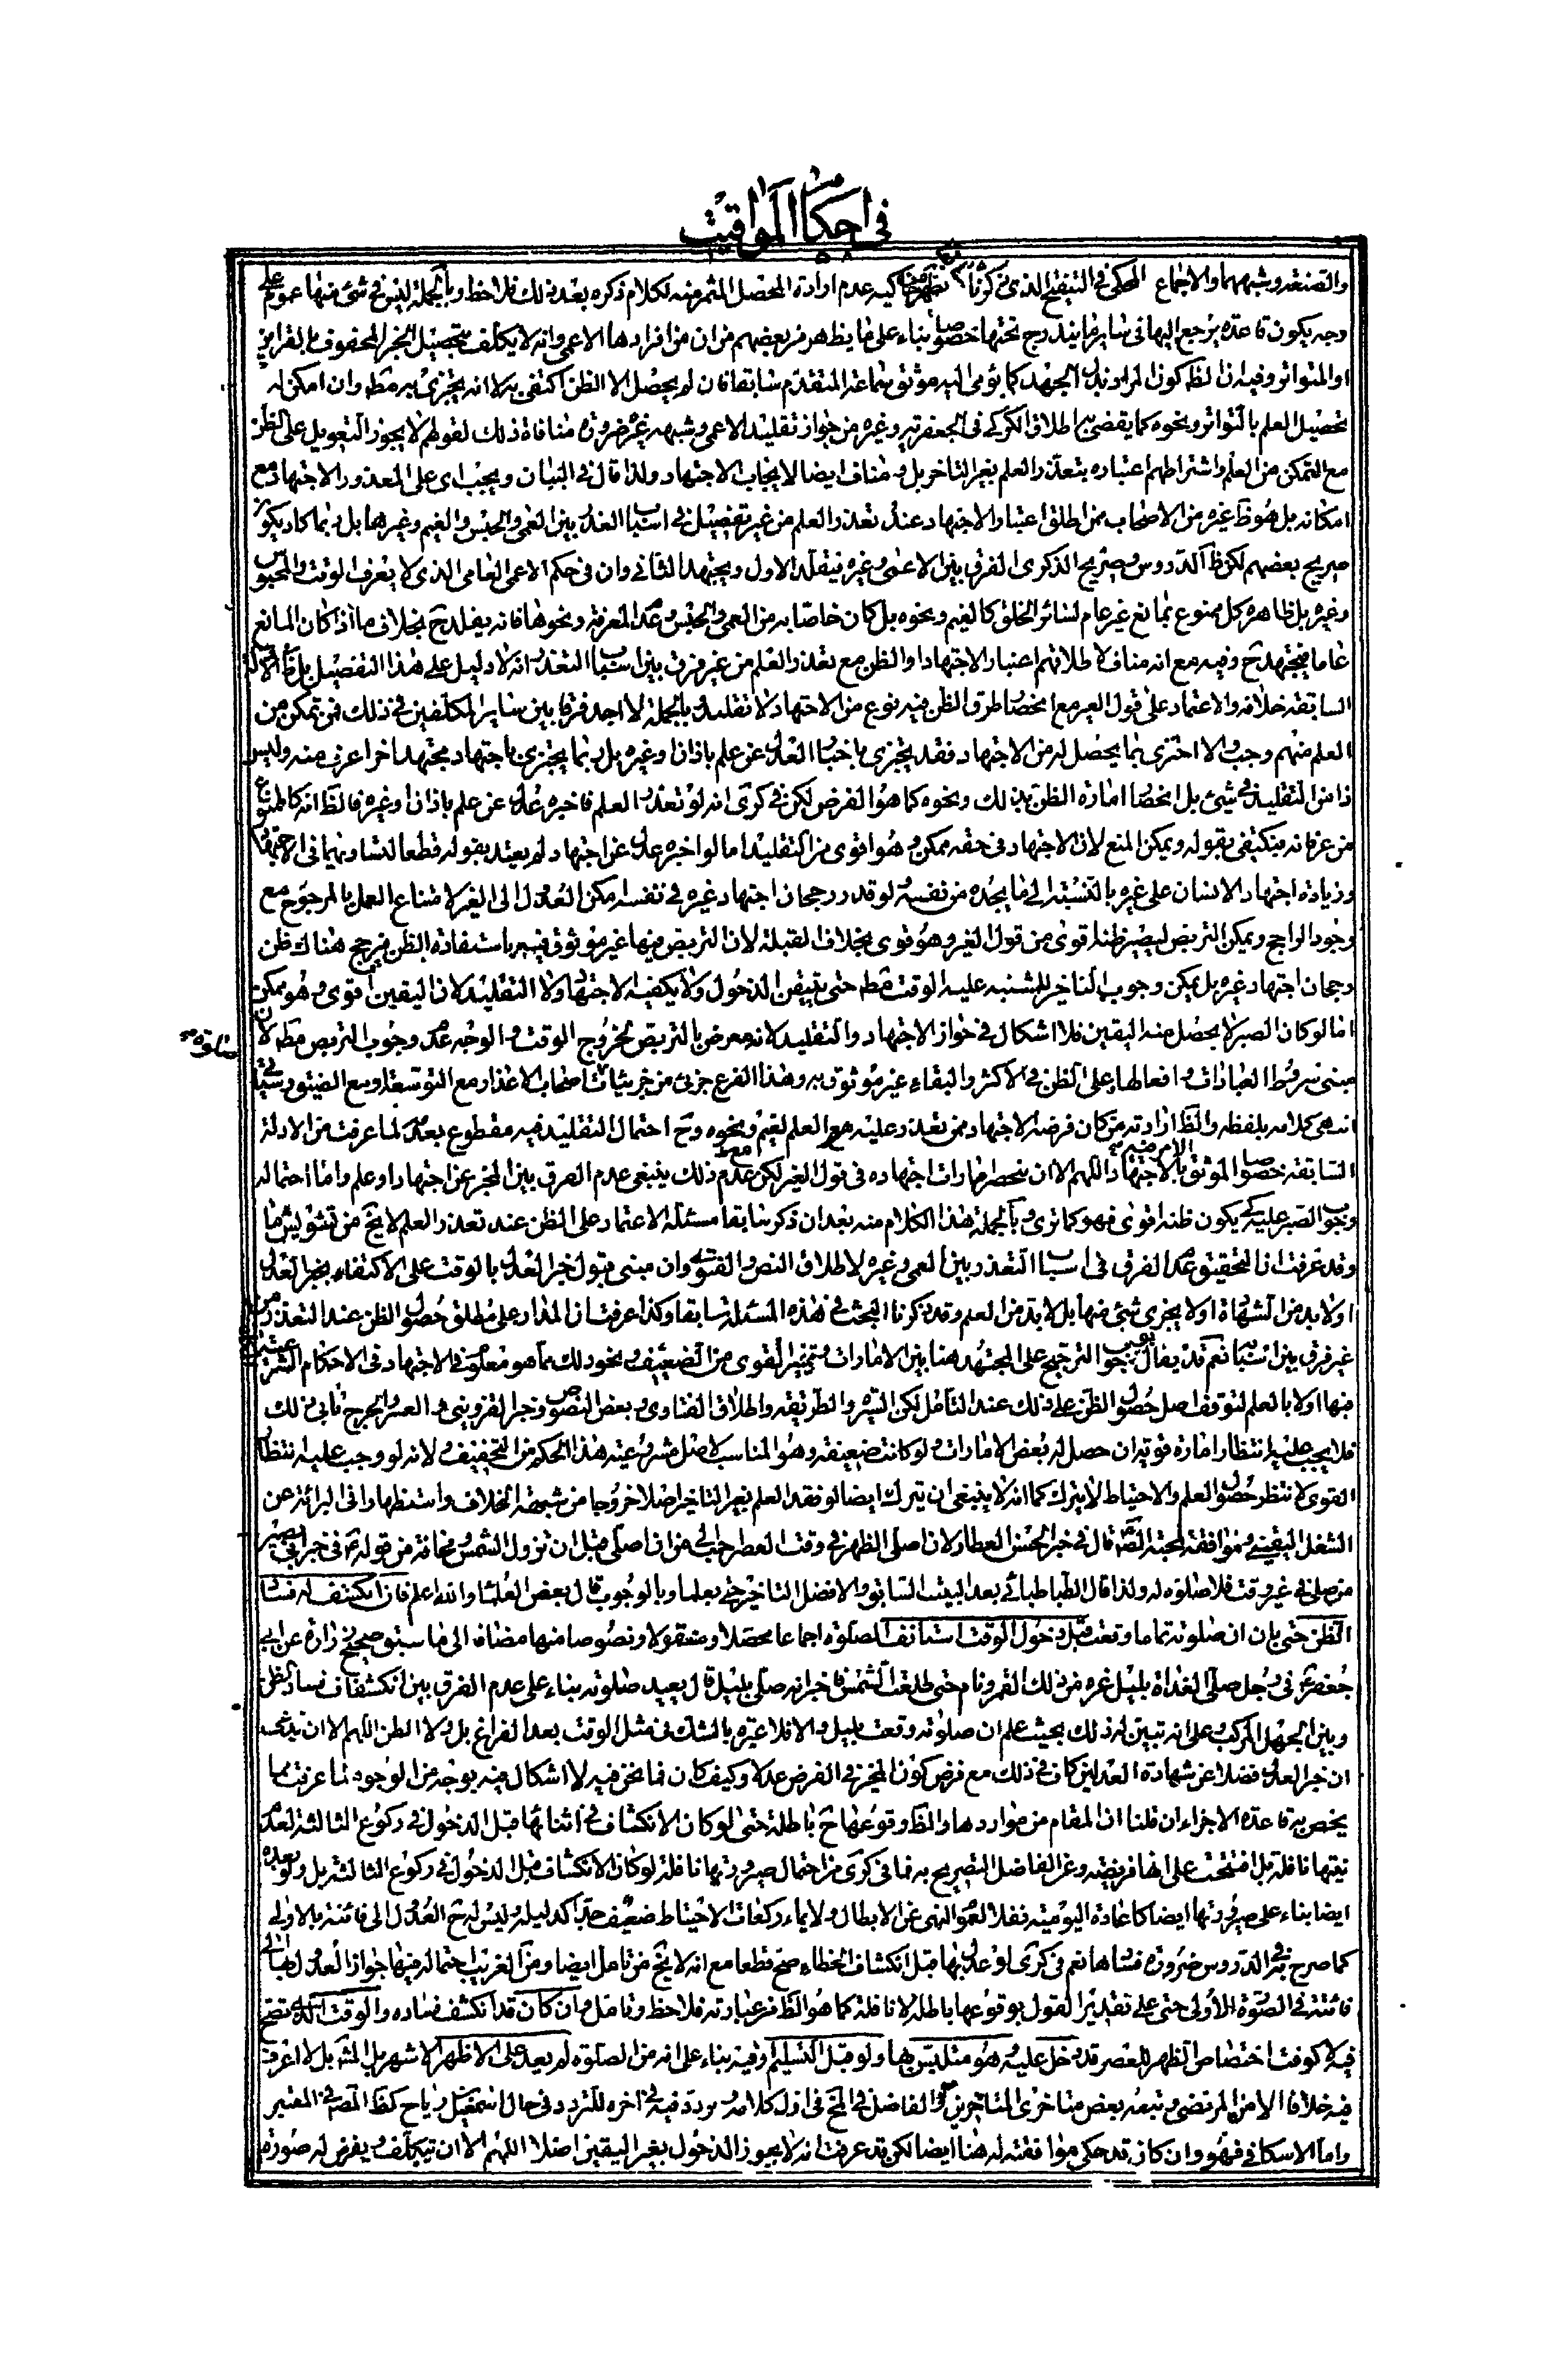 في احكام المواقيت
والصنعة وشبههما والاجماع المحكي في التنقيح الذي ذكرنا عدم ارادة المحصل المثمر منه لكلام ذكره بعد ذلك فلاحظ وبالجملة ليس في شئ منها عموم على
وجه يكون قاعدة يرجع اليها في ساير ما يندرج تحتها خصوصا بناء على ما يظهر من بعضهم من ان من افرادها الاعمى وانه لا يكلف بتحصيل الخبر المحفوف بالقراين
او المتواتر وفيه ان الظ كون المراد بذل الجهد كما يومي اليه موثق سماعة المتقدم سابقا فان لم يحصل الا الظن اكتفى به لا انه يجتزئ به مط وان امكن له
تحصيل العلم بالتواتر ونحوه كما يقضي به اطلاق الكركي في الجعفرية وغيره من جواز تقليد الاعمى وشبهه غيره ضرورة منافاة ذلك لقولهم لا يجوز التعويل على الظن
مع التمكن من العلم واشتراطهم اعتباره بتعذر العلم بغير التاخير بل ومناف ايضا لايجاب الاجتهاد ولذا قال في البيان ويجب اي على المعذور الاجتهاد مع
امكانه بل هو ظ غيره من الاصحاب ممن اطلق اعتبار الاجتهاد عند تعذر العلم من غير تفصيل في اسباب العذر بين العمى والحبس والغيم وغيرها بل ربما كاد يكون
صريح بعضهم لكن ظ الدروس وصريح الذكرى الفرق بين الاعمى وغيره فيقلد الاول ويجتهد الثاني وان في حكم الاعمى العامي الذي لا يعرف الوقت والمحبوس
وغيره بل ظاهره كل ممنوع بمانع غير عام لسائر الخلق كالغيم ونحوه بل كان خاصا به من العمى والحبس وعدم المعرفة ونحوها فانه يقلد ح بخلاف ما اذا كان المانع
عاما فيجتهد ح وفيه مع انه مناف لاطلاقهم اعتبار الاجتهاد او الظن مع تعذر العلم من غير فرق بين اسباب التعذر انه لا دليل على هذا التفصيل بل ظ الادلة
السابقة خلافه والاعتماد على قول الغير مع انحصار طرق الظن فيه نوع من الاجتهاد لا تقليد وبالجملة لا اجد فرقا بين ساير المكلفين في ذلك فمن تمكن من
العلم منهم وجب والا اجتزى بما يحصل له من الاجتهاد فقد يجتزي باخبار العدل عن علم باذان وغيره بل ربما يجتزئ باجتهاد مجتهد اخر اعرف منه وليس
ذا من التقليد في شئ بل انحصار امارة الظن بذلك ونحوه كما هو الفرض لكن في كرى انه لو تعذر العلم فاخبره عدل عن علم باذان او غيره فالظ انه كالممنوع
من عرفانه فيكتفي بقوله ويمكن المنع لان الاجتهاد في حقه ممكن وهو اقوى من التقليد اما لو اخبره عدل عن اجتهاد لم يعتد بقوله قطعا لتساويهما في الاجتهاد
وزيادة اجتهاد الانسان على غيره بالنسبة الى ما يجده من نفسه ولو قدر رجحان اجتهاد غيره في نفسه امكن العدول الى الغير لامتناع العمل بالمرجوح مع
وجود الراجح ويمكن التربص ليصير ظنه اقوى من قول الغير وهو قوي بخلاف القبلة لان التربص فيها غير موثوق فيه باستفادة الظن فيرجح هناك ظن
رجحان اجتهاد غيره بل يمكن وجوب التاخير للمشتبه عليه الوقت مط حتى يتيقن الدخول ولا يكفيه الاجتهاد ولا التقليد لان اليقين اقوى وهو ممكن
اما لو كان الصبر لا يحصل منه اليقين فلا اشكال في جواز الاجتهاد والتقليد لانه معرض بالتربص لخروج الوقت والوجه عدم وجوب التربص مط لان
مبنى شروط العبادات وافعالها على الظن في الاكثر والبقاء غير موثوق به وهذا الفرع جزئ من جزئيات اصحاب الاعذار مع التوسعة ومع الضيق وسياتي
انتهى كلامه بلفظه والظ ارادته من كان فرضه الاجتهاد ممن تعذر عليه العلم لغيم ونحوه وح احتمال التقليد فيه مقطوع بعدمه لما عرفت من الادلة
السابقة خصوصا الموثق الامر فيه بالاجتهاد اللهم الا ان ينحصر امارات اجتهاده في قول الغير لكن مع ذلك ينبغي عدم الفرق بين المخبر عن اجتهاد او علم واما احتماله
وجوب الصبر عليه كي يكون ظنه اقوى فهو كما ترى وبالجملة هذا الكلام منه بعد ان ذكر سابقا مسئلة الاعتماد على الظن عند تعذر العلم لا يخ من تشويش ما
وقد عرفت ان التحقيق عدم الفرق في اسباب التعذر بين العمى وغيره لاطلاق النص والفتوى وان مبنى قبول خبر العدل بالوقت على الاكتفاء بخبر العدل
او لا بد من الشهادة او لا يجزي شئ منها بل لا بد من العلم وقد ذكرنا البحث في هذه المسئلة سابقا وكذا عرفت ان المدار على مطلق حصول الظن عند التعذر من
غير فرق بين اسبابه نعم قد يقال بوجوب الترجيح على المجتهد هنا بين الامارات وتمييز القوي من الضعيف ونحو ذلك مما هو معلوم في الاجتهاد في الاحكام الشرعية
فيها اولا بالعلم لتوقف اصل حصول الظن على ذلك عند التامل لكن السيرة والطريقة واطلاق الفتاوى وبعض النصوص وخبر القزويني والعسر والحرج تابى ذلك
فلا يجب عليه انتظار امارة قوية ان حصل له بعض الامارات ولو كانت ضعيفة وهو المناسب لاصل مشروعية هذا الحكم من التخفيف ولانه لو وجب عليه انتظار
القوي لانتظر حصول العلم والاحتياط لا يترك كما انه لا ينبغي ان يترك ايضا لو فقد العلم بغير التاخير اصلا خروجا من شبهة الخلاف واستظهارا في البرائة عن
الشغل اليقيني وموافقة لمحبة الصادق قال في خبر الحسن العطار لان اصلي الظهر في وقت العصر احب الي من ان اصلي قبل ان تزول الشمس ومخافة من قوله ع في خبر ابي بصير
من صلى في غير وقت فلا صلوة له ولذا قال الطباطبائي بعد البيت السابق والافضل التاخير حتى يعلما وبالوجوب قال بعض العلما والله اعلم فان انكشف له فساد
الظن حتى بان ان صلوته تماما وقعت قبل دخول الوقت استانف الصلوة اجماعا محصلا ومنقولا ونصوصا منها مضافا الى ما سبق صحيح زرارة عن ابي
جعفر ع في رجل صلى الغداة بليل غره من ذلك القمر ونام حتى طلعت الشمس فاخبر انه صلى بليل قال يعيد صلوته بناء على عدم الفرق بين انكشاف فساد الظن
وبين الجهل المركب وعلى انه تبين له ذلك بحيث علم ان صلوته وقعت بليل والا فلا عبرة بالشك في مثل الوقت بعد الفراغ بل ولا الظن اللهم الا ان يدعى
ان خبر العدل فضلا عن شهادة العدلين كاف في ذلك مع فرض كون المخبر في الفرض عدلا وكيف كان فما نحن فيه لا اشكال فيه بوجه من الوجوه لما عرفت مما
يخص به قاعدة الاجزاء ان قلنا ان المقام من مواردها والظ وقوعها ح باطلة حتى لو كان الانكشاف في اثنائها قبل الدخول في ركوع الثالثة لعدم
نيتها نافلة بل افتتحت على انها فريضة وعن الفاضل التصريح به فما في كرى من احتمال صيرورتها نافلة لو كان الانكشاف قبل الدخول في ركوع الثالثة بل ولو بعده
ايضا بناء على صيرورتها ايضا كاعادة اليومية نفلا لعموم النهي عن الابطال ولايماء ركعات الاحتياط ضعيف جدا كدليله وليس له ح العدول الى فائتة بالاولى
كما صرح به في الدروس ضرورة فسادها نعم في كرى لو عدل بها قبل انكشاف الخطاء صح قطعا مع انه لا يخ من تامل ايضا ومن الغريب احتماله فيها جواز العدول بها الى
فائتة في الصورة الاولى حتى على تقدير القول بوقوعها باطلة لا نافلة كما هو الظ من عبارته فلاحظ وتامل وان كان قد انكشف فساده والوقت الذي تصح
فيه لا كوقت اختصاص الظهر للعصر قد دخل عليه وهو متلبس بها ولو قبل التسليم وفيه بناء على انه من الصلوة لم يعد على الاظهر الاشهر بل المش بل لا اعرف
فيه خلافا الا من المرتضى وتبعه بعض متاخري المتاخرين والفاضل في المخ في اول كلامه وتردد فيه في اخره للتردد في حال اسمعيل بن رياح كظ المص في المعتبر
واما الاسكافي فهو وان كان قد حكي موافقته له هنا ايضا لكن قد عرفت انه لا يجوز الدخول بغير اليقين اصلا اللهم الا ان يتكلف ويفرض له صورة